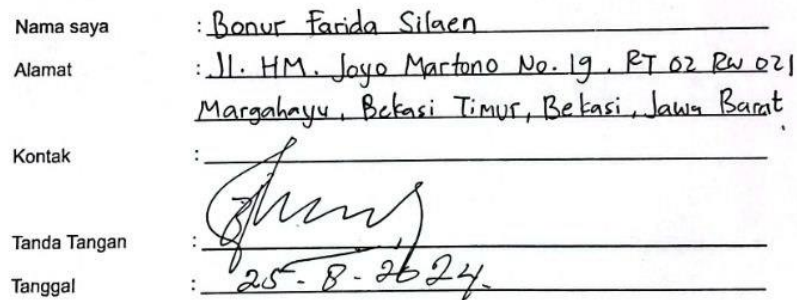 Nama saya : Bonur Farida Silaen
Alamat : Jl. HM. Joyo Martono No. 19, RT 02 RW 021
Margahayu, Bekasi Timur, Bekasi, Jawa Barat
Kontak :
Tanda Tangan :
Tanggal : 25-8-2024.